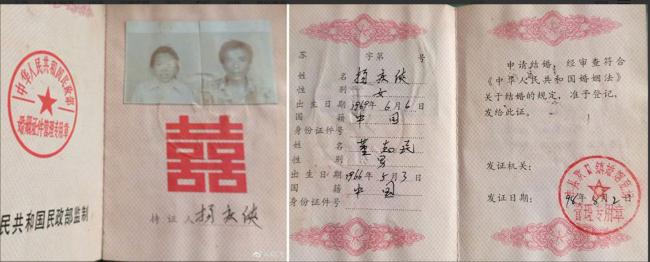 中华人民共和国民政部
婚姻证件管理专用章
民共和国民政部监制
囍
持证人 杨庆侠
字第 号
姓名 杨庆侠
性别 女
出生日期 1969年6月6日
国籍 中国
身份证件号
姓名 董志民
性别 男
出生日期 1966年5月3日
国籍 中国
身份证件号
申请结婚,经审查符合
《中华人民共和国婚姻法》
关于结婚的规定,准予登记,
发给此证。
发证机关:
管理专用章
发证日期: 98.8.2